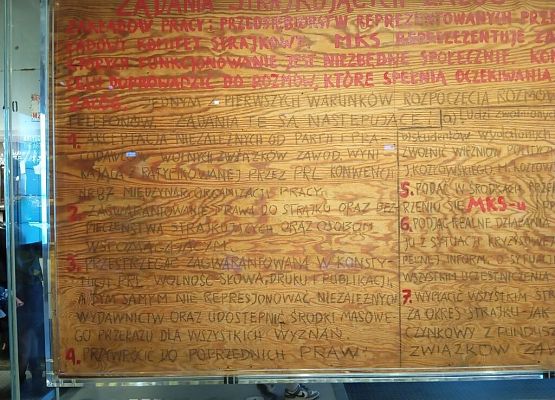 ŻĄDANIA STRAJKUJĄCYCH ZAŁÓG
ZAKŁADÓW PRACY I PRZEDSIĘBIORSTW REPREZENTOWANYCH PRZE
ZADOWY KOMITET STRAJKOWY. MKS REPREZENTUJE ZA
KTÓRYCH FUNKCJONOWANIE JEST NIEZBĘDNE SPOŁECZNIE. KOM
DOPROWADZENIE DO ROZMÓW, KTÓRE SPEŁNIĄ OCZEKIWANIA
ZAŁÓG. JEDNYM Z PIERWSZYCH WARUNKÓW ROZPOCZĘCIA ROZMÓW
TELEFONÓW. ŻĄDANIA TE SĄ NASTĘPUJĄCE:
1. AKCEPTACJA NIEZALEŻNYCH OD PARTII I PRA-
CODAWCÓW WOLNYCH ZWIĄZKÓW ZAWOD. WYNI-
KAJĄCA Z RATYFIKOWANEJ PRZEZ PRL KONWENCJI
NR 87 MIĘDZYNAR. ORGANIZACJI PRACY.
2. ZAGWARANTOWANIE PRAWA DO STRAJKU ORAZ BEZ-
PIECZEŃSTWA STRAJKUJĄCYCH ORAZ OSOBOM
WSPOMAGAJĄCYM.
3. PRZESTRZEGAĆ ZAGWARANTOWANĄ W KONSTY-
TUCJI PRL WOLNOŚĆ SŁOWA, DRUKU I PUBLIKACJI,
A TYM SAMYM NIE REPRESJONOWAĆ NIEZALEŻNYCH
WYDAWNICTW ORAZ UDOSTĘPNIĆ ŚRODKI MASOWE-
GO PRZEKAZU DLA WSZYSTKICH WYZNAŃ.
4. PRZYWRÓCIĆ DO POPRZEDNICH PRAW
a) Ludzi zwolnionych
b) studentów wydalonych
ZWOLNIĆ WIĘŹNIÓW POLITYCZ
J. KOZŁOWSKIEGO, M. KOZŁOW
5. PODAĆ W ŚRODKACH PRZE
RZENIU SIĘ MKS-u
6. PODJĄĆ REALNE DZIAŁANIA
JU Z SYTUACJI KRYZYSOWE
PEŁNEJ INFORM. O SYTUACJI
WSZYSTKIM UCZESTNICZENIA
7. WYPŁACIĆ WSZYSTKIM
ZA OKRES STRAJKU JAK
CZYNKOWY Z FUNDUSZ
ZWIĄZKÓW ZAW